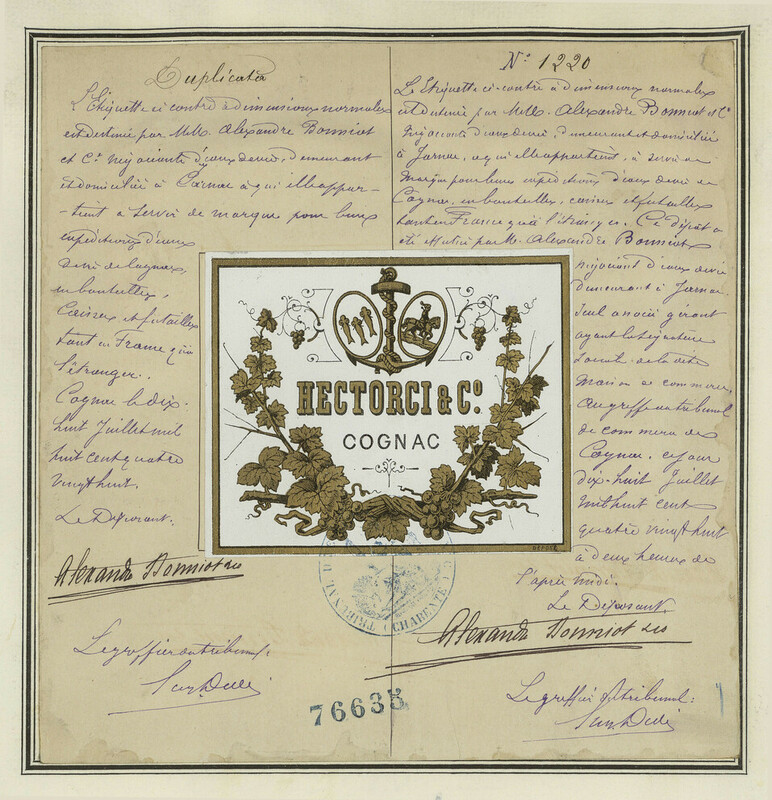 Duplicata
L'Etiquette ci contre à dimensions normales
est destinée par MM. Alexandre Bonniot
et Cie négociants d'eaux de vie, demeurant
et domiciliée à Jarnac à qui elle appar-
-tient a servir de marque pour leurs
expéditions d'eaux
de vie de Cognac,
en bouteilles,
Caisses et futailles
tant en France qu'à
l'étranger.
Cognac le dix-
huit Juillet mil
huit cent quatre
vingt huit.
Le Déposant.
Alexandre Bonniot &
Le greffier du tribunal:
No 1220
L'Etiquette ci-contre à dimensions normales
est destinée par MM. Alexandre Bonniot et Cie
Négociants d'eaux de vie, demeurant et domiciliée
à Jarnac, à qui elle appartient, à servir de
Marque pour leurs expéditions d'eaux de vie de
Cognac, en bouteilles, caisses et futailles
tant en France qu'à l'étranger. Ce dépôt a
été effectué par M. Alexandre Bonniot
négociant d'eaux de vie
demeurant à Jarnac
seul associé gérant
ayant la signature
sociale de la dite
maison de commerce,
au greffe du tribunal
de commerce de
Cognac, ce jour
dix-huit Juillet
mil huit cent
quatre vingt huit
à deux heures de
l'après midi.
Le Déposant
Alexandre Bonniot &
Le greffier du tribunal:
HECTORCI & Co.
COGNAC
DÉPOSÉ
TRIBUNAL D
CHARENTE
76635